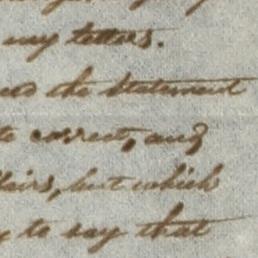 my letters.
the statement
correct, and
but which
to say that